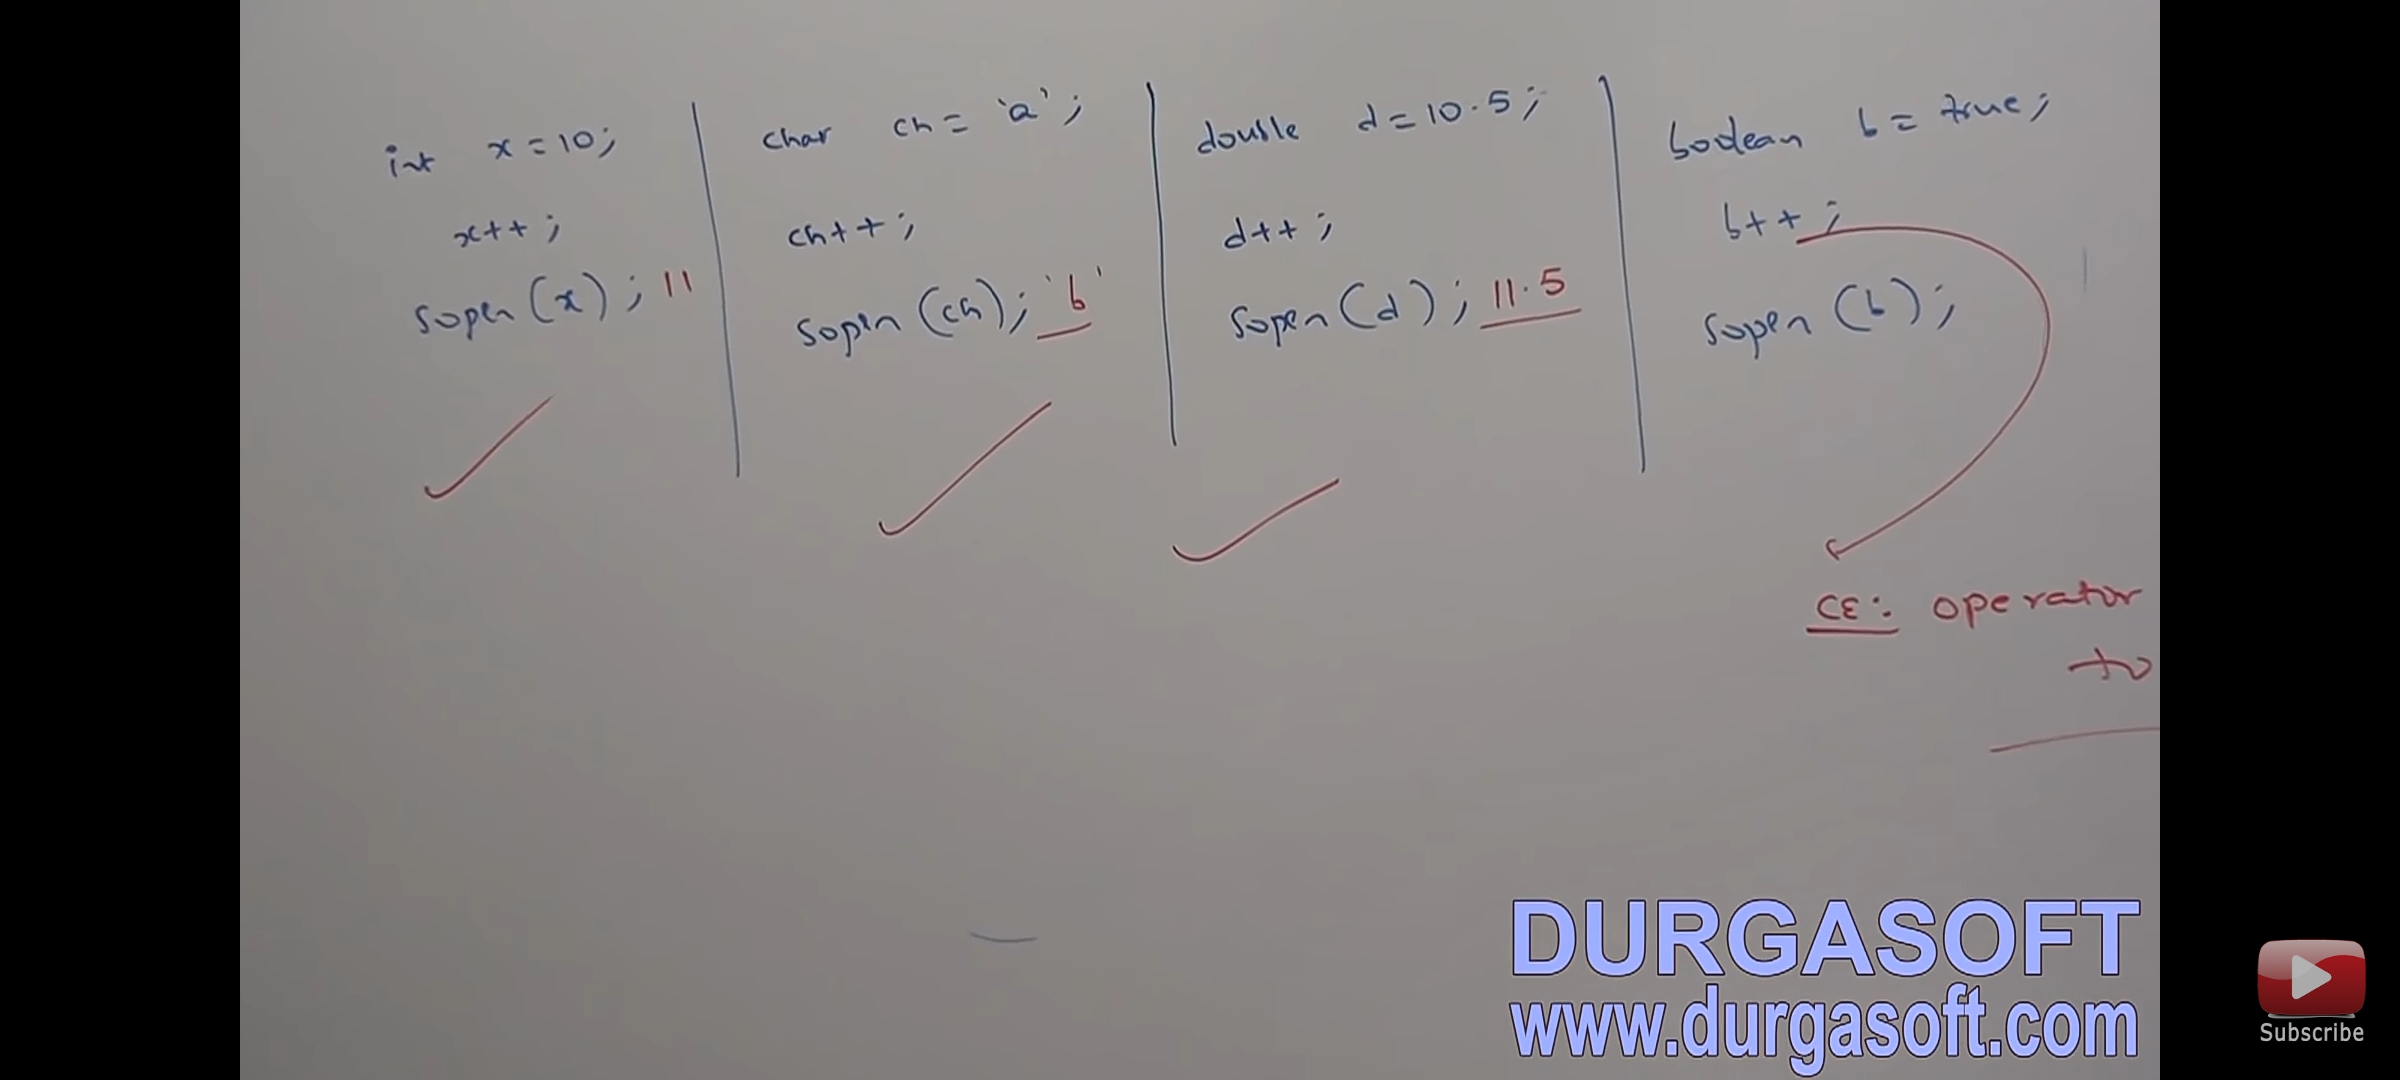 int x = 10;
x++;
sopln(x); 11
char ch = 'a';
ch++;
sopln(ch); 'b'
double d = 10.5;
d++;
sopln(d); 11.5
boolean b = true;
b++;
sopln(b);
CE: operator
to
DURGASOFT
www.durgasoft.com
Subscribe